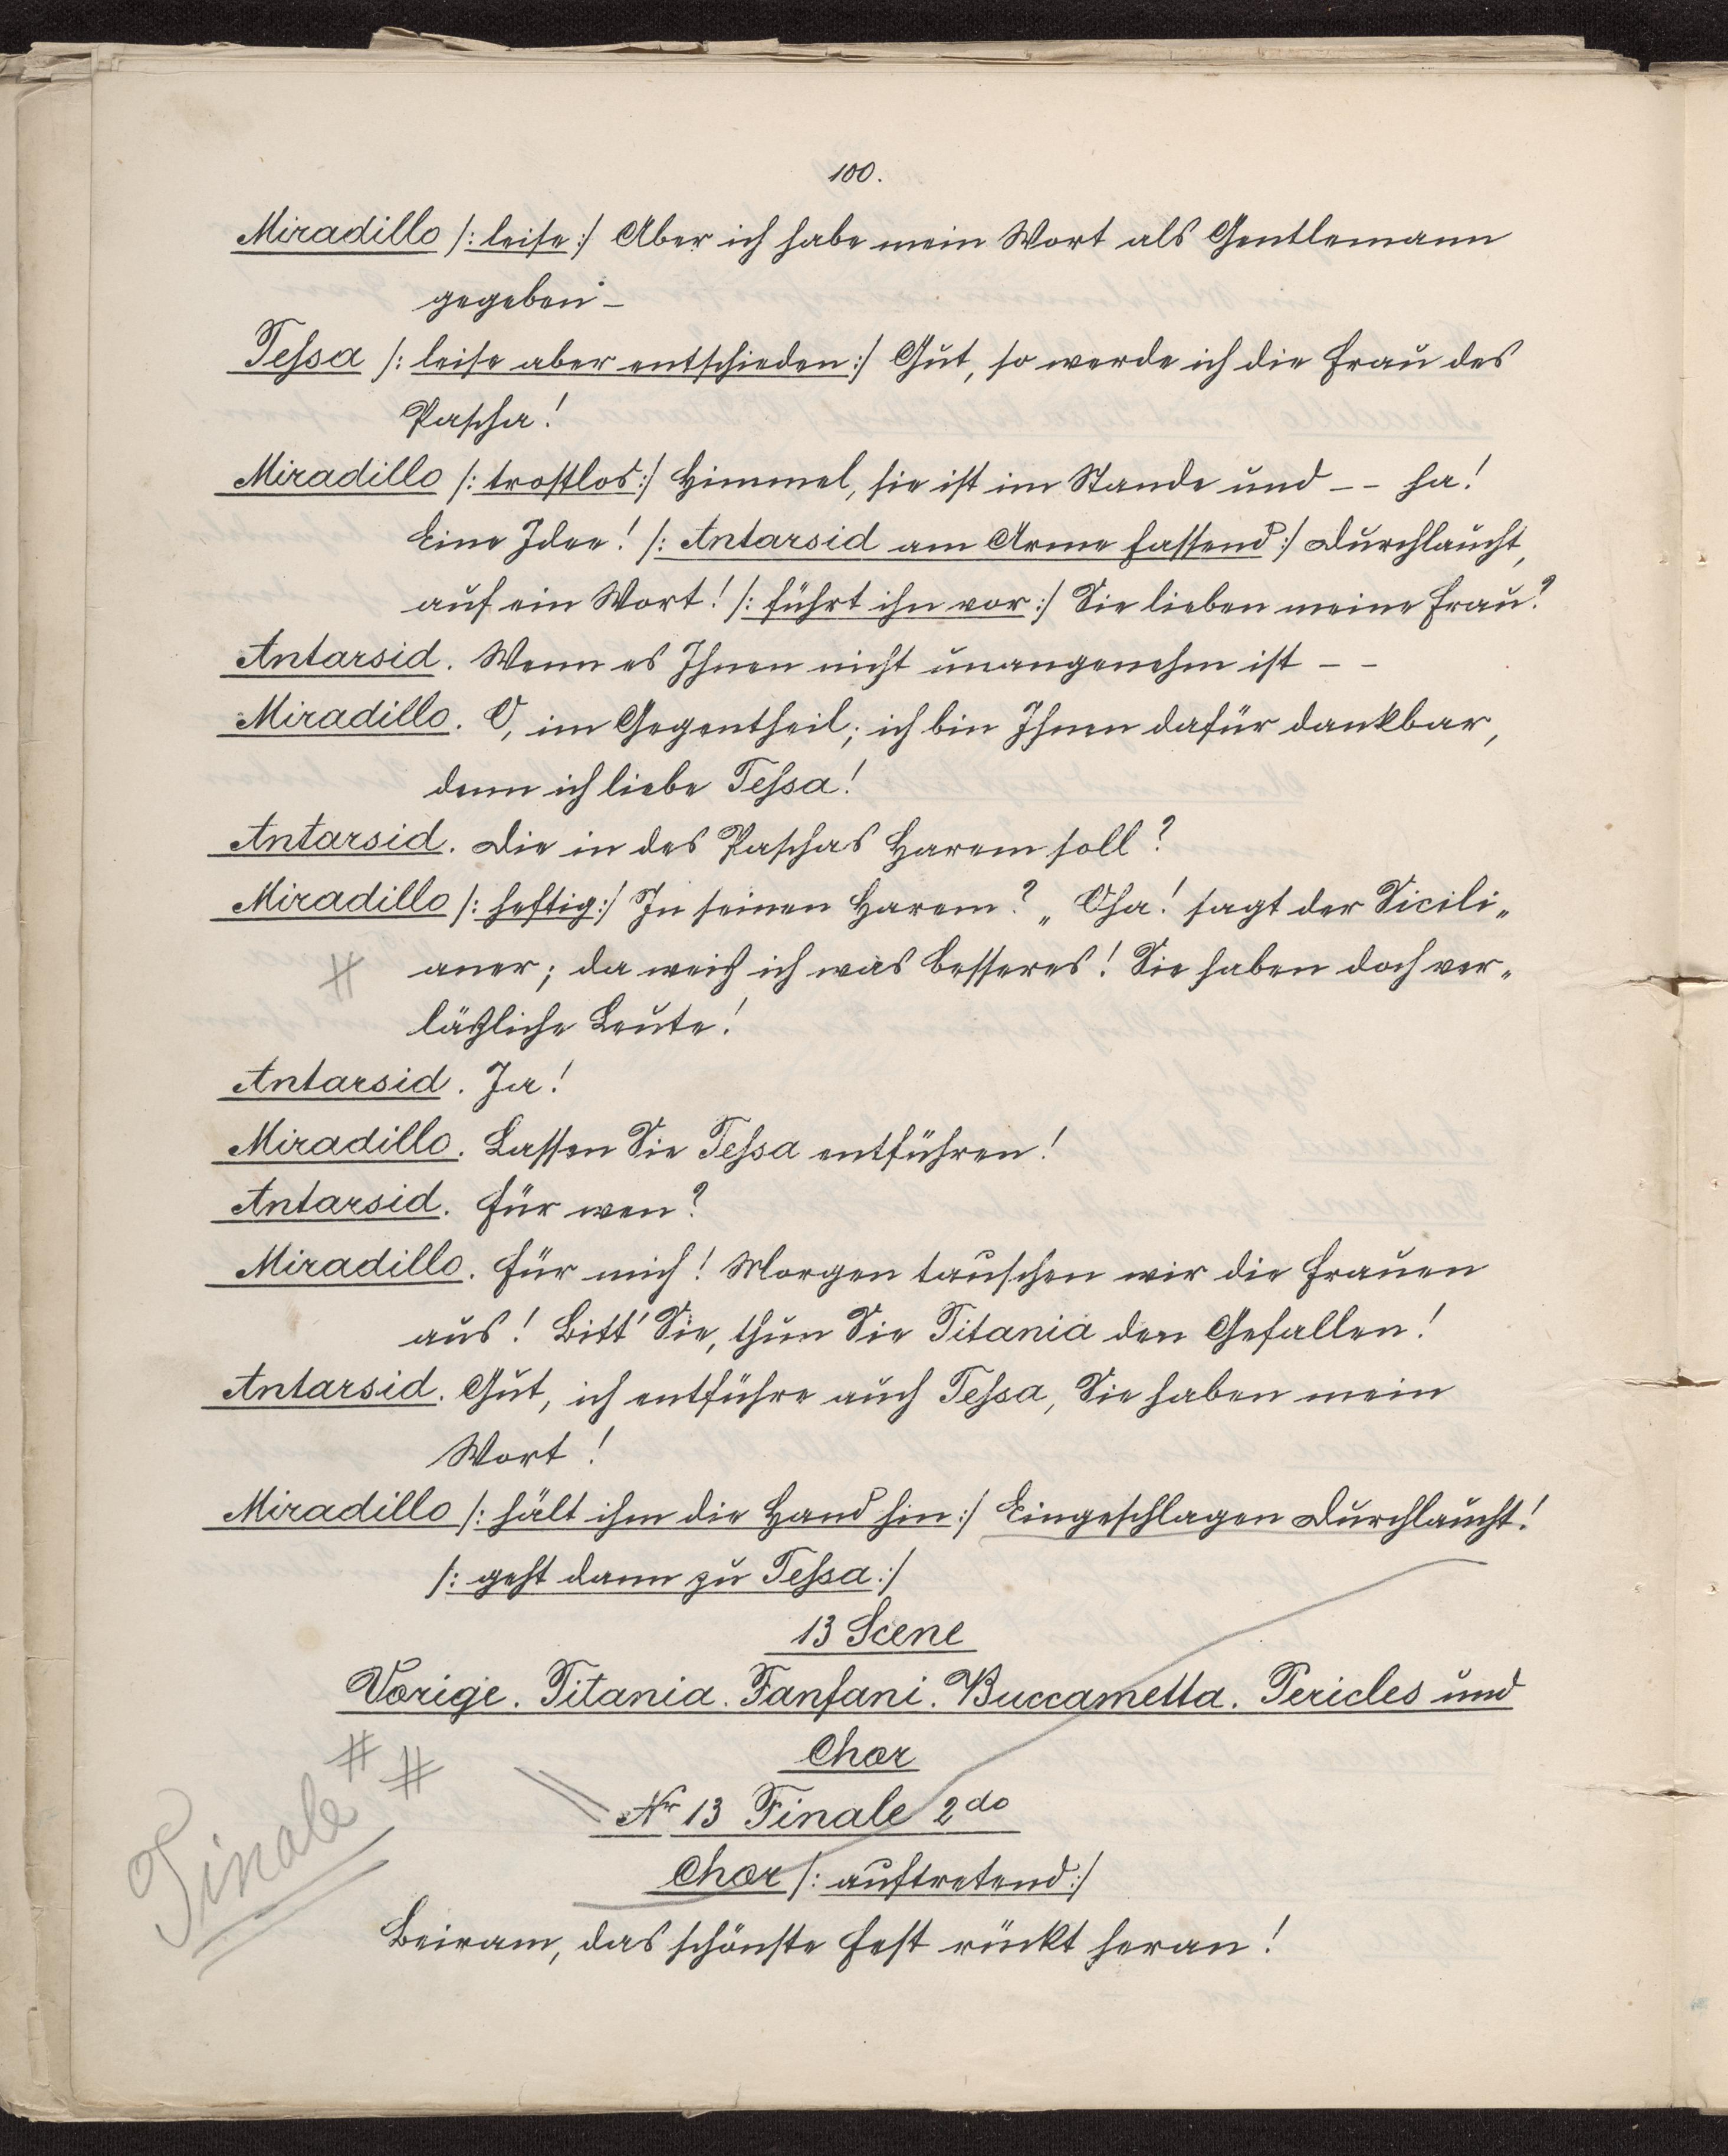 100.
Miradillo /: leise :/ Aber ich habe mein Wort als Gentlemann
gegeben –
Tessa /: leise aber entschieden :/ Gut, so werde ich die Frau des
Pascha!
Miradillo /: trostlos :/ Himmel, sie ist im Stande und – – ha!
Eine Idee! /: Antarsid am Arme fassend :/ Durchlaucht,
auf ein Wort! /: führt ihn vor :/ Sie lieben meine Frau?
Antarsid. Wenn es Ihnen nicht unangenehm ist – –
Miradillo. O, im Gegentheil; ich bin Ihnen dafür dankbar,
denn ich liebe Tessa!
Antarsid. Die in des Paschas Harem soll?
Miradillo /: heftig :/ In seinen Harem? „Oha! sagt der Sicili„
# aner; da weiß ich was Besseres! Sie haben doch ver„
läßliche Leute!
Antarsid. Ja!
Miradillo. Lassen Sie Tessa entführen!
Antarsid. Für wen?
Miradillo. Für mich! Morgen tauschen wir die Frauen
aus! Bitt' Sie, thun Sie Titania den Gefallen!
Antarsid. Gut, ich entführe auch Tessa, Sie haben mein
Wort!
Miradillo /: hält ihm die Hand hin :/ Eingeschlagen Durchlaucht!
/: geht dann zu Tessa :/
13 Scene
Vorige. Titania. Fanfani. Buccametta. Pericles und
Chor
# #
Finale
Nr 13 Finale 2do
Chor /: auftretend :/
Beiram, das schönste Fest rückt heran!